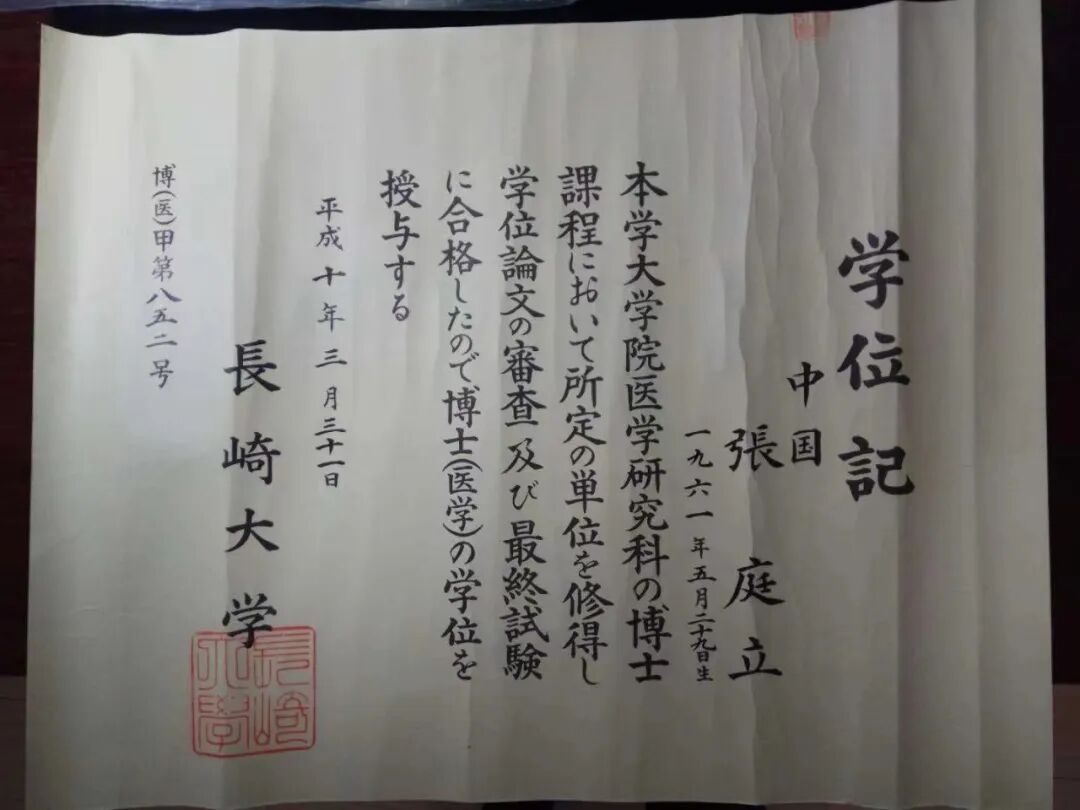 学位記
中国
張庭立
一九六一年五月二十九日生
本学大学院医学研究科の博士
課程において所定の単位を修得し
学位論文の審査及び最終試験
に合格したので博士(医学)の学位を
授与する
平成十年三月三十一日
長崎大学
長崎大學
博(医)甲第八五二号